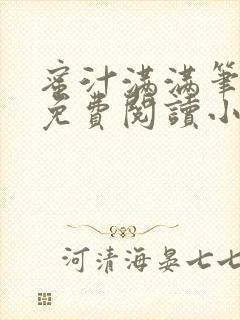 蜜汁满满筆
免費閱讀小
河清海晏七七